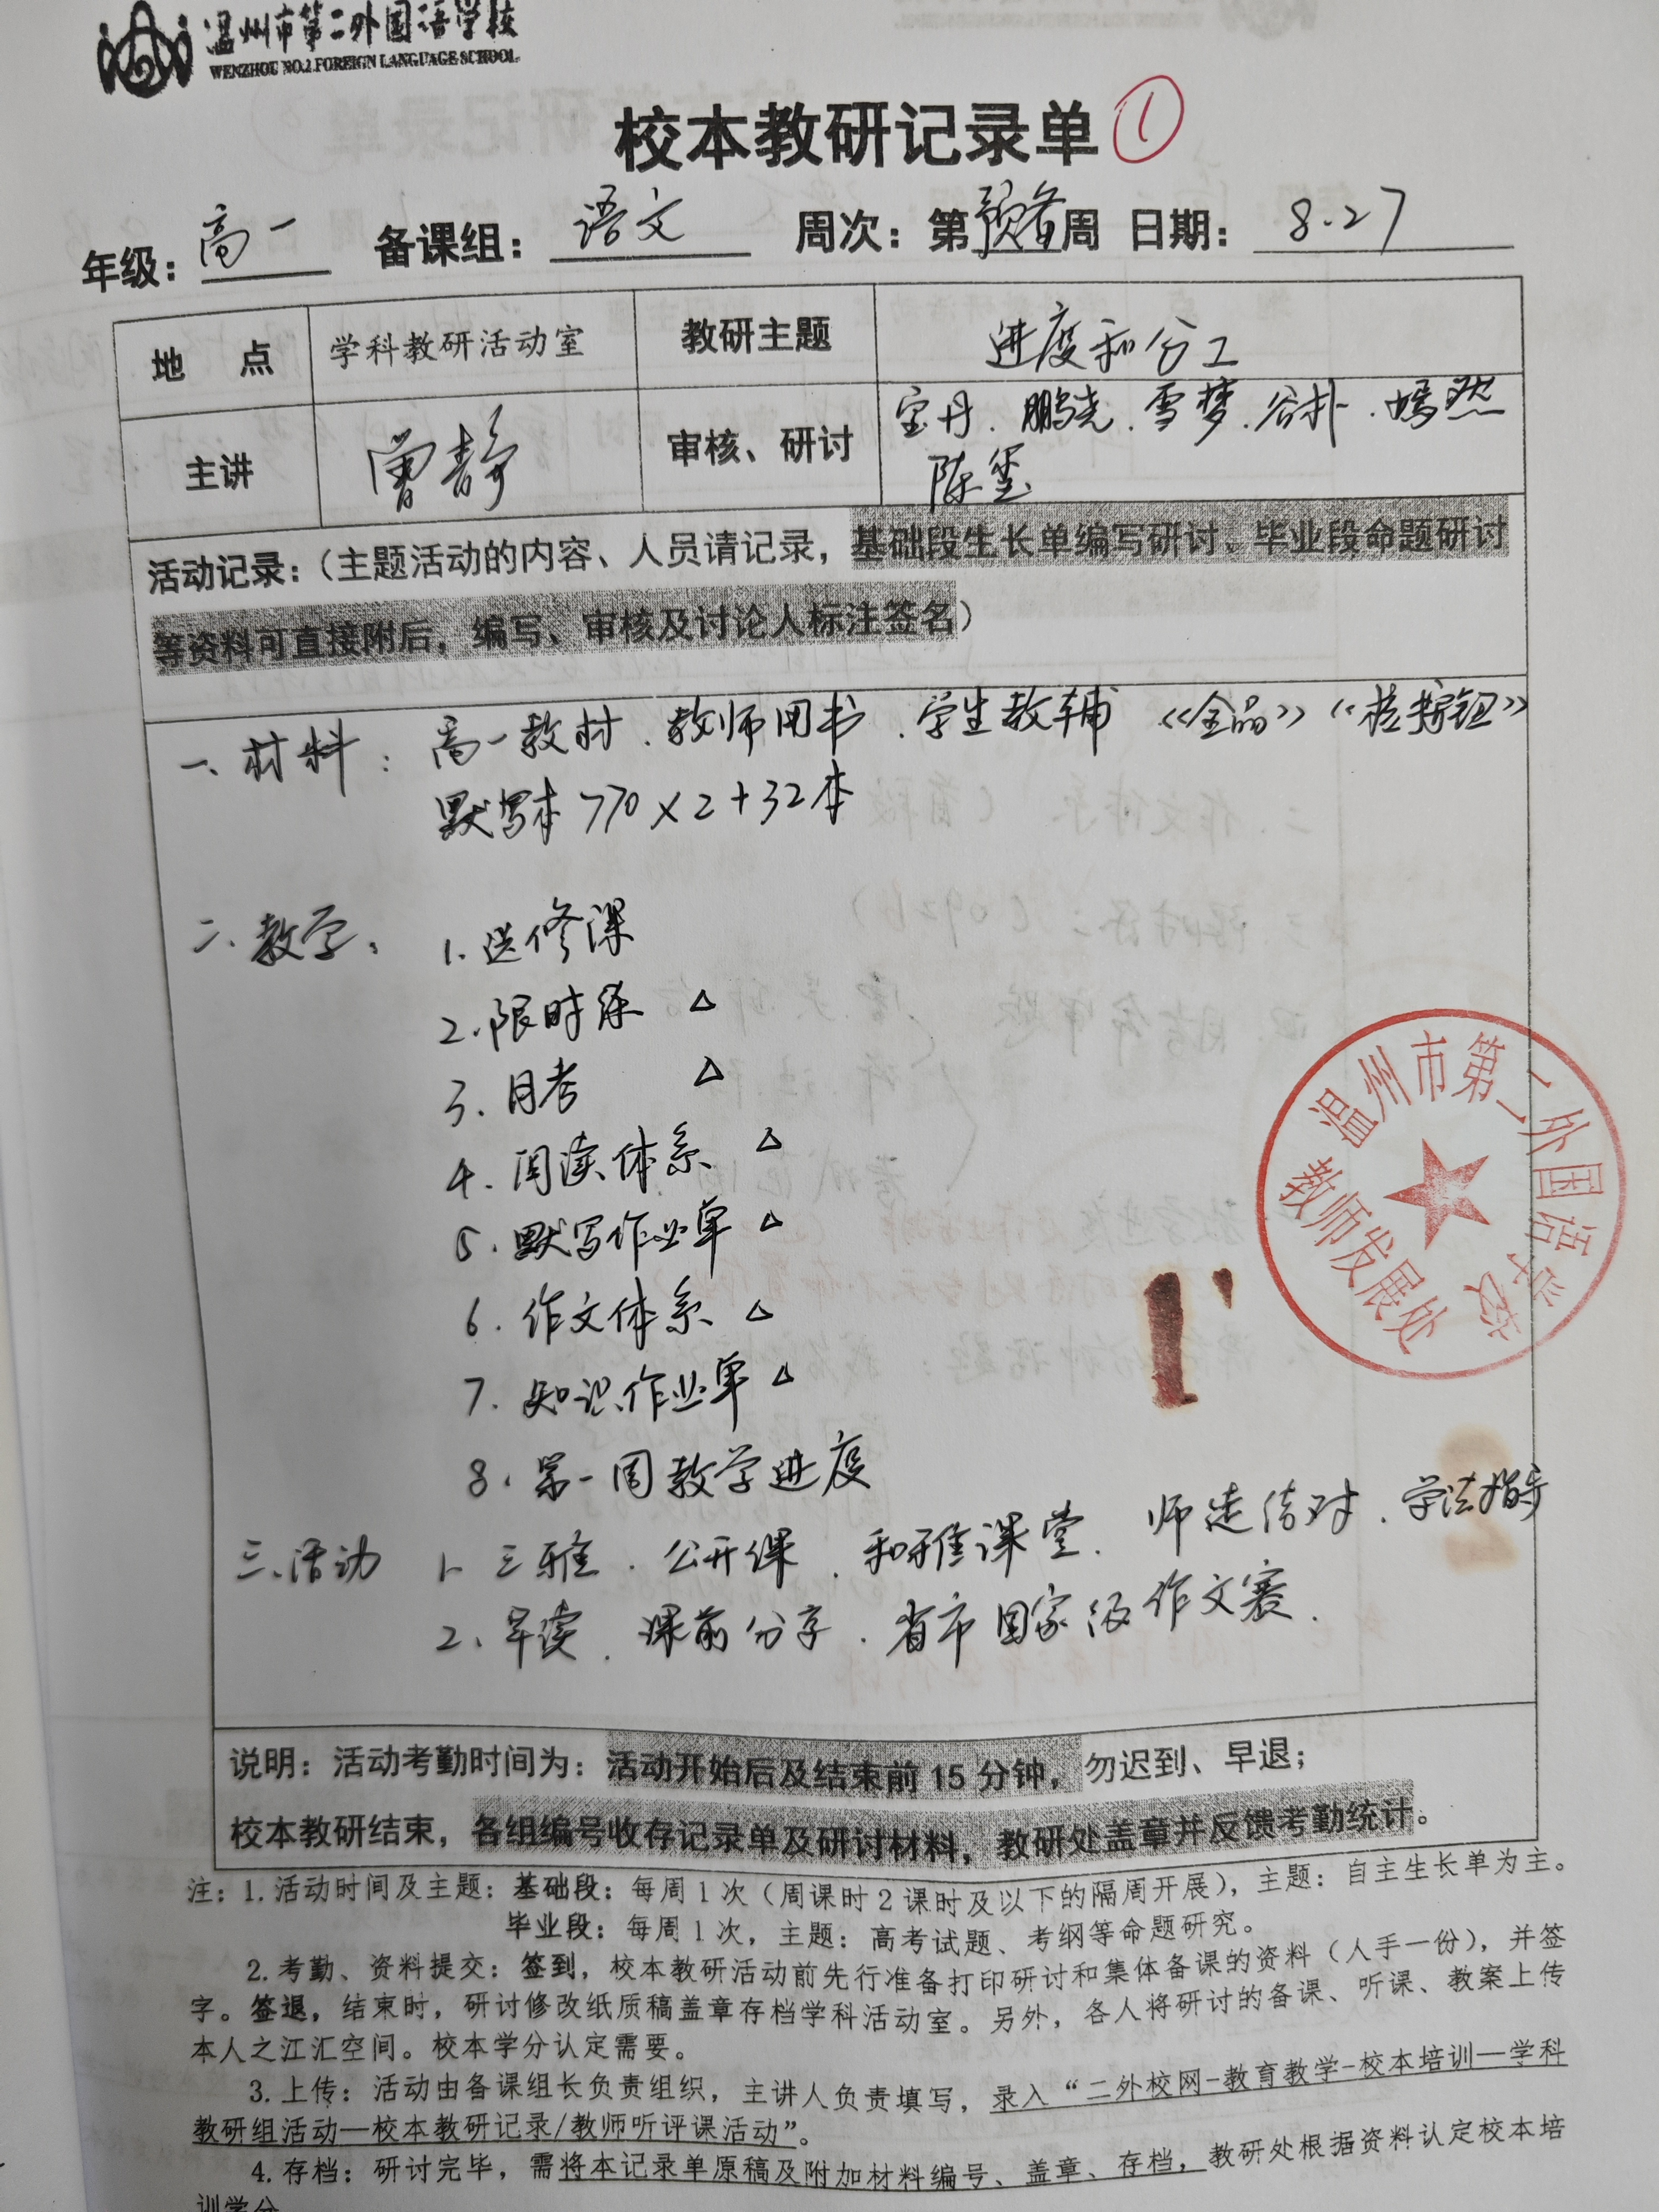 温州市第二外国语学校
WENZHOU NO.2 FOREIGN LANGUAGE SCHOOL
校本教研记录单 ①
年级：高一 备课组：语文 周次：第预备周 日期：8.27
地 点 学科教研活动室 教研主题 进度和分工
主讲 曾静 审核、研讨 宝丹、鹏尧、雪梦、谷朴、嫣然
陈玺
活动记录：（主题活动的内容、人员请记录，基础段生长单编写研讨。毕业段命题研讨
等资料可直接附后，编写、审核及讨论人标注签名）
一、材料： 高一教材、教师用书、学生教辅 《全品》《核按钮》
默写本 770×2+32本
二、教学： 1. 选修课
2. 限时练 △
3. 月考 △
4. 阅读体系 △
5. 默写作业单 △
6. 作文体系 △
7. 知识作业单 △
8. 第一周教学进度
三、活动 1、三雅、公开课、和雅课堂、师徒结对、学法指导
2、早读、课前分享、省市国家级作文赛.
温州市第二外国语学校
教师发展处
说明：活动考勤时间为：活动开始后及结束前 15 分钟，勿迟到、早退；
校本教研结束，各组编号收存记录单及研讨材料，教研处盖章并反馈考勤统计。
注：1.活动时间及主题：基础段：每周 1 次（周课时 2 课时及以下的隔周开展），主题：自主生长单为主。
毕业段：每周 1 次，主题：高考试题、考纲等命题研究。
2.考勤、资料提交：签到，校本教研活动前先行准备打印研讨和集体备课的资料（人手一份），并签
字。签退，结束时，研讨修改纸质稿盖章存档学科活动室。另外，各人将研讨的备课、听课、教案上传
本人之江汇空间。校本学分认定需要。
3.上传：活动由备课组长负责组织，主讲人负责填写，录入“二外校网-教育教学-校本培训—学科
教研组活动—校本教研记录/教师听评课活动”。
4.存档：研讨完毕，需将本记录单原稿及附加材料编号、盖章、存档，教研处根据资料认定校本培
训学分